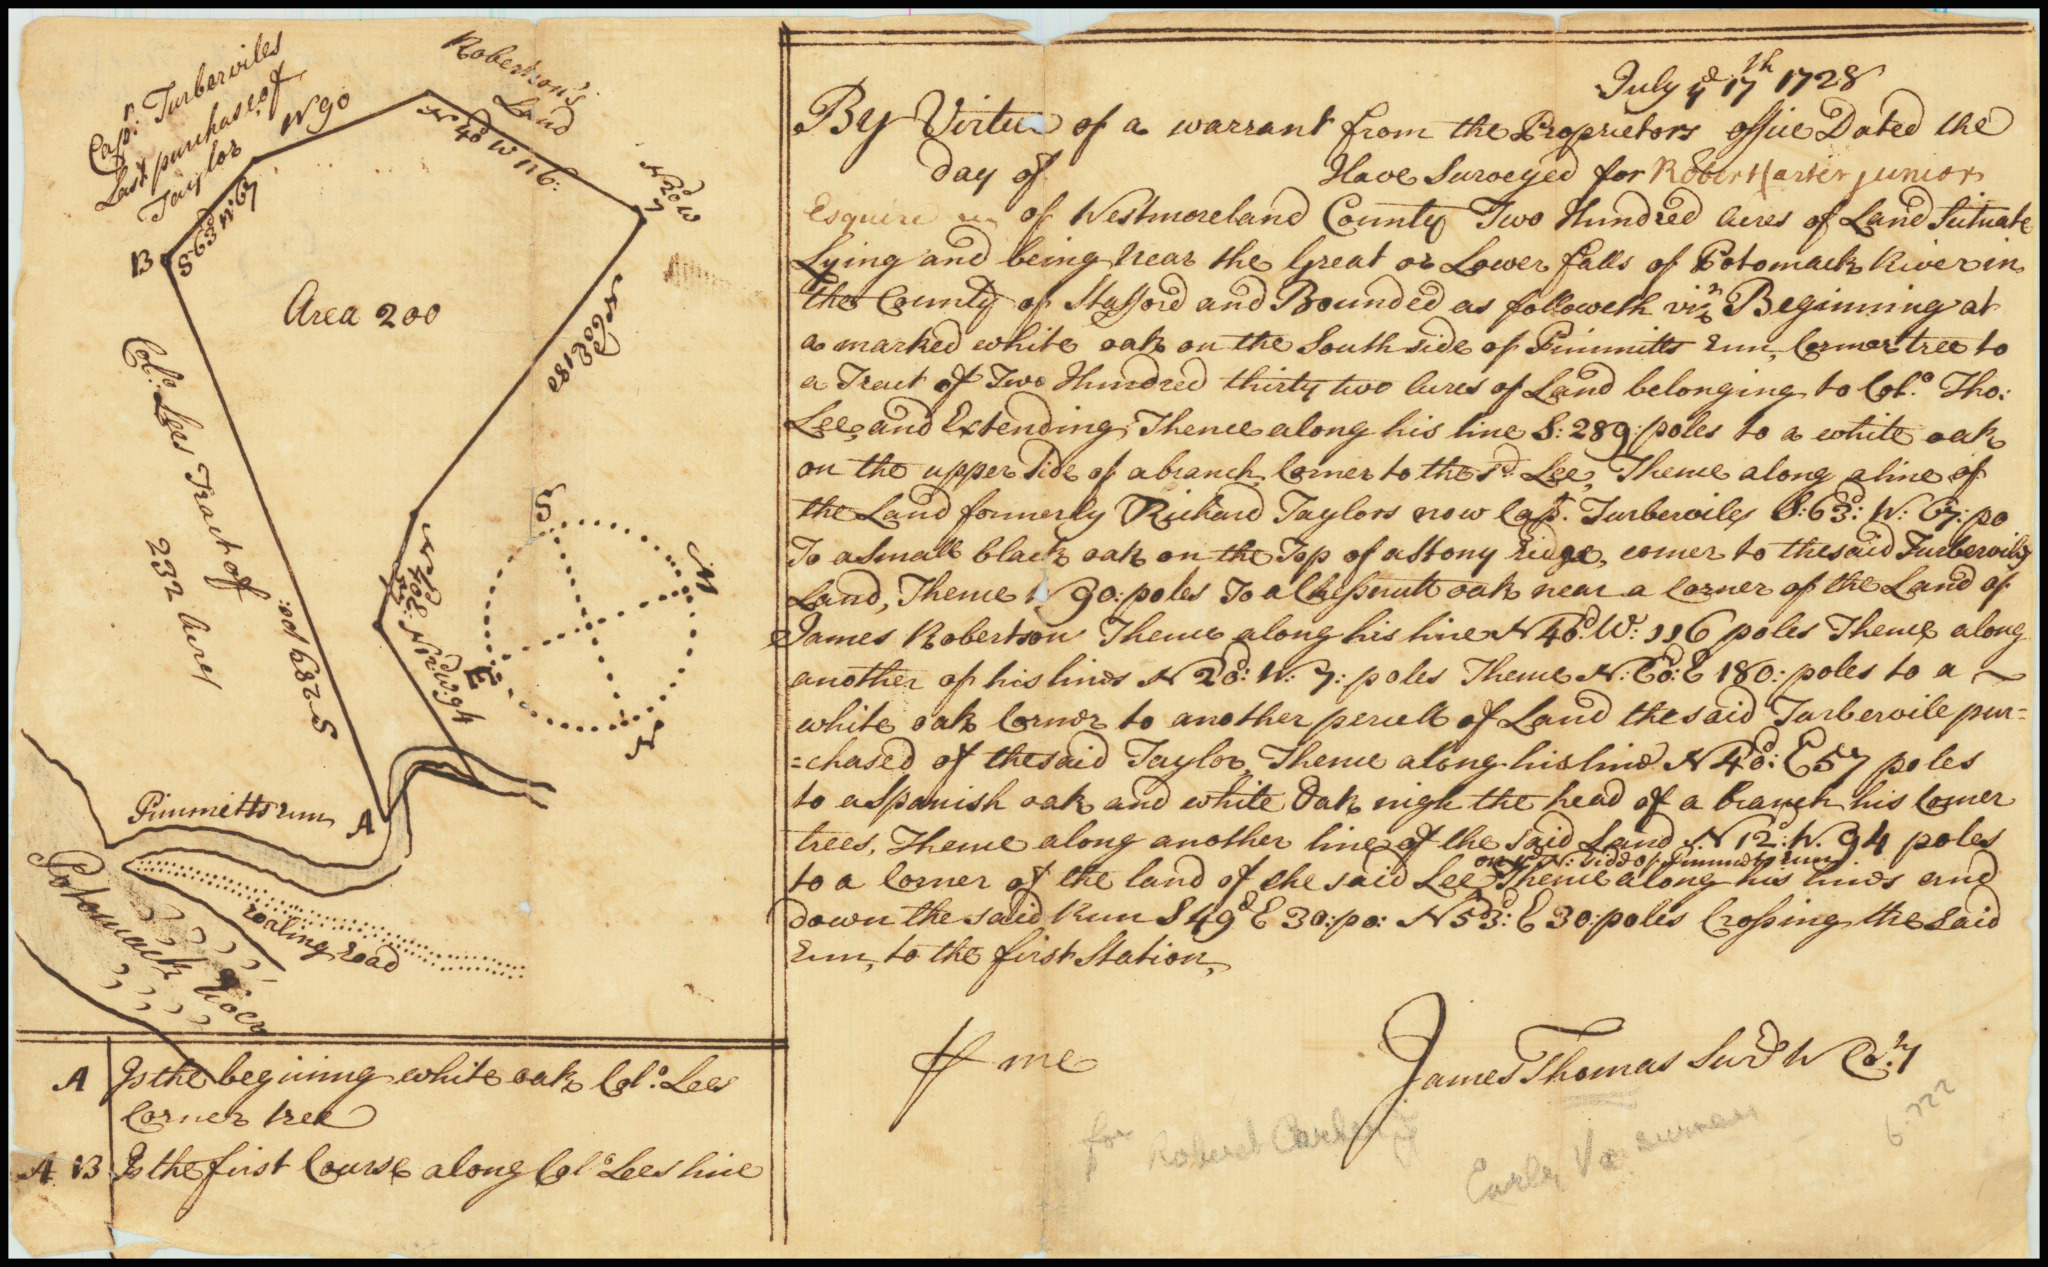 Capt: Turberviles
Last purchase of
Taylor
W 90
Robertson's
Land
N 40d W 116:
N 20d W
7
S 63d W: 67
B
Area 200
N 60d E 180
Colo: Lees Tract of
232 Acres
S 289 po:
N 40d E
57
N 12d W: 94
S
W
E
N
Pimmetts run
A
Potomack River
roaling road
A Is the begining white oak Colo: Lees
Corner tree
A B Is the first Course along Colo: Lees line
July ye 17th 1728
By Virtue of a warrant from the Proprietors office Dated the
day of Have Surveyed for Robert Carter junior
Esquire of Westmoreland County Two Hundred Acres of Land Situate
Lying and being near the Great or Lower falls of Potomack River in
the County of Stafford and Bounded as followeth vizt Beginning at
a marked white oak on the South side of Pimmitts run, Corner tree to
a Tract of Two Hundred thirty two Acres of Land belonging to Colo. Tho:
Lee, and Extending, Thence along his line S: 289: poles to a white oak
on the upper side of a branch Corner to the sd. Lee, Thence along a line of
the Land formerly Richard Taylors now Capt. Turberviles S: 63d: W: 67: po
To a Small black oak on the Top of a Stony ridge, corner to the said Turberviles
Land, Thence W 90: poles To a Chesnutt oak near a Corner of the Land of
James Robertson Thence along his line N 40d: W: 116 poles Thence along
another of his lines N 20d: W: 7: poles Thence N: 60d: E 180: poles to a
white oak Corner to another percell of Land the said Turbervile pur=
=chased of the said Taylor Thence along his line N 40d: E 57 poles
to a Spanish oak and white Oak nigh the head of a branch his Corner
trees, Thence along another line of the said Land N 12d: W. 94 poles
on ye N: side of Pimmets run
to a Corner of the land of the said Lee Thence along his lines and
down the said Run S 49d E 30: po: N 53d: E 30: poles Crossing the said
run, to the first Station,
me
James Thomas Survr W Coty
for Robert Carter
Early